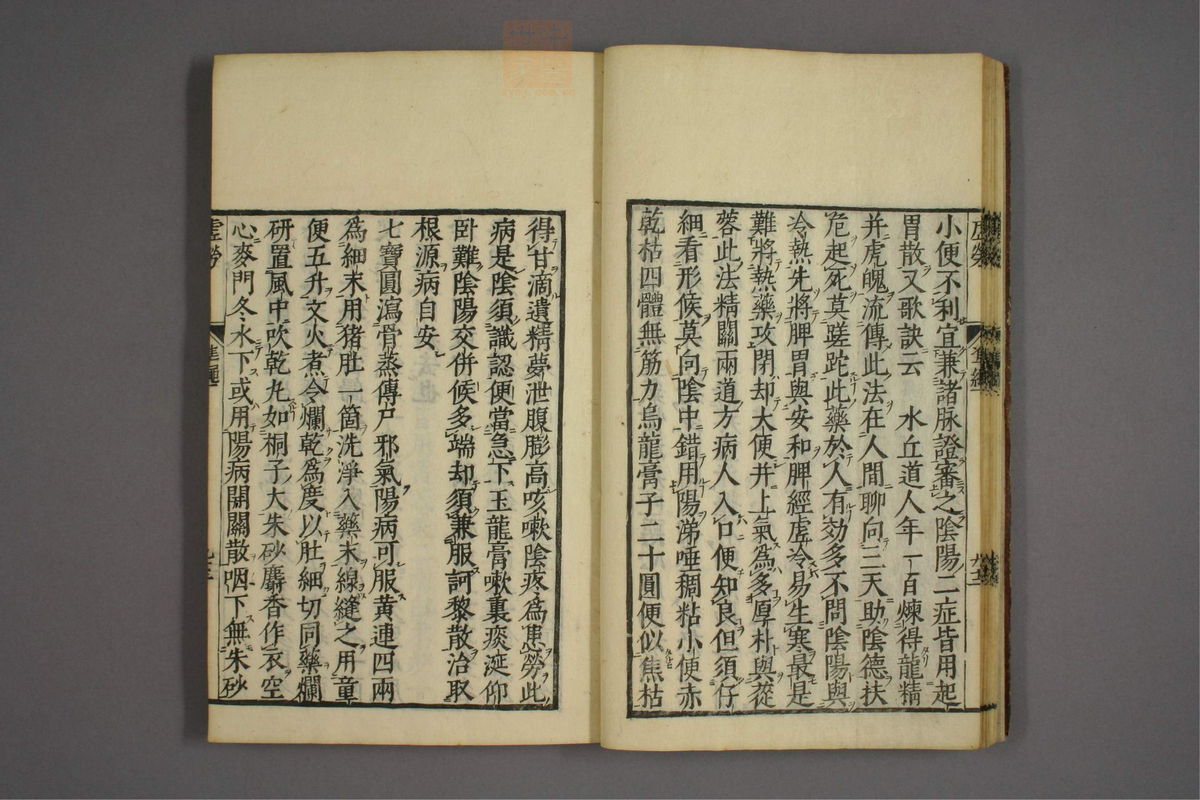 小便不利宜兼諸脉證審之陰陽二症皆用起
胃散又歌訣云　水丘道人年一百煉得龍精
并虎魄流傳此法在人間聊向三天助陰德扶
危起死莫蹉跎此藥於人有効多不問陰陽與
冷熱先將脾胃與安和脾經虛冷易生寒最是
難將熱藥攻閉却大便并上氣為多厚朴與蓯
蓉此法精關兩道方病人入口便知良但須仔
細看形候莫向陰中錯用陽涕唾稠粘小便赤
乾枯四體無筋力烏龍膏子二十圓便似焦枯
得甘滴遺精夢泄腹膨高咳嗽陰疼為患勞此
病是陰須識認便當急下玉龍膏嗽裏痰涎仰
卧難陰陽交併候多端却須兼服訶黎散治取
根源病自安
七寶圓瀉骨蒸傳尸邪氣陽病可服黄連四兩
為細末用猪肚一箇洗淨入藥末線縫之用童
便五升文火煮令爛乾為度以肚細切同藥爛
研置風中吹乾丸如桐子大朱砂麝香作衣空
心麥門冬水下或用陽病開關散咽下無朱砂
虛勞
準繩